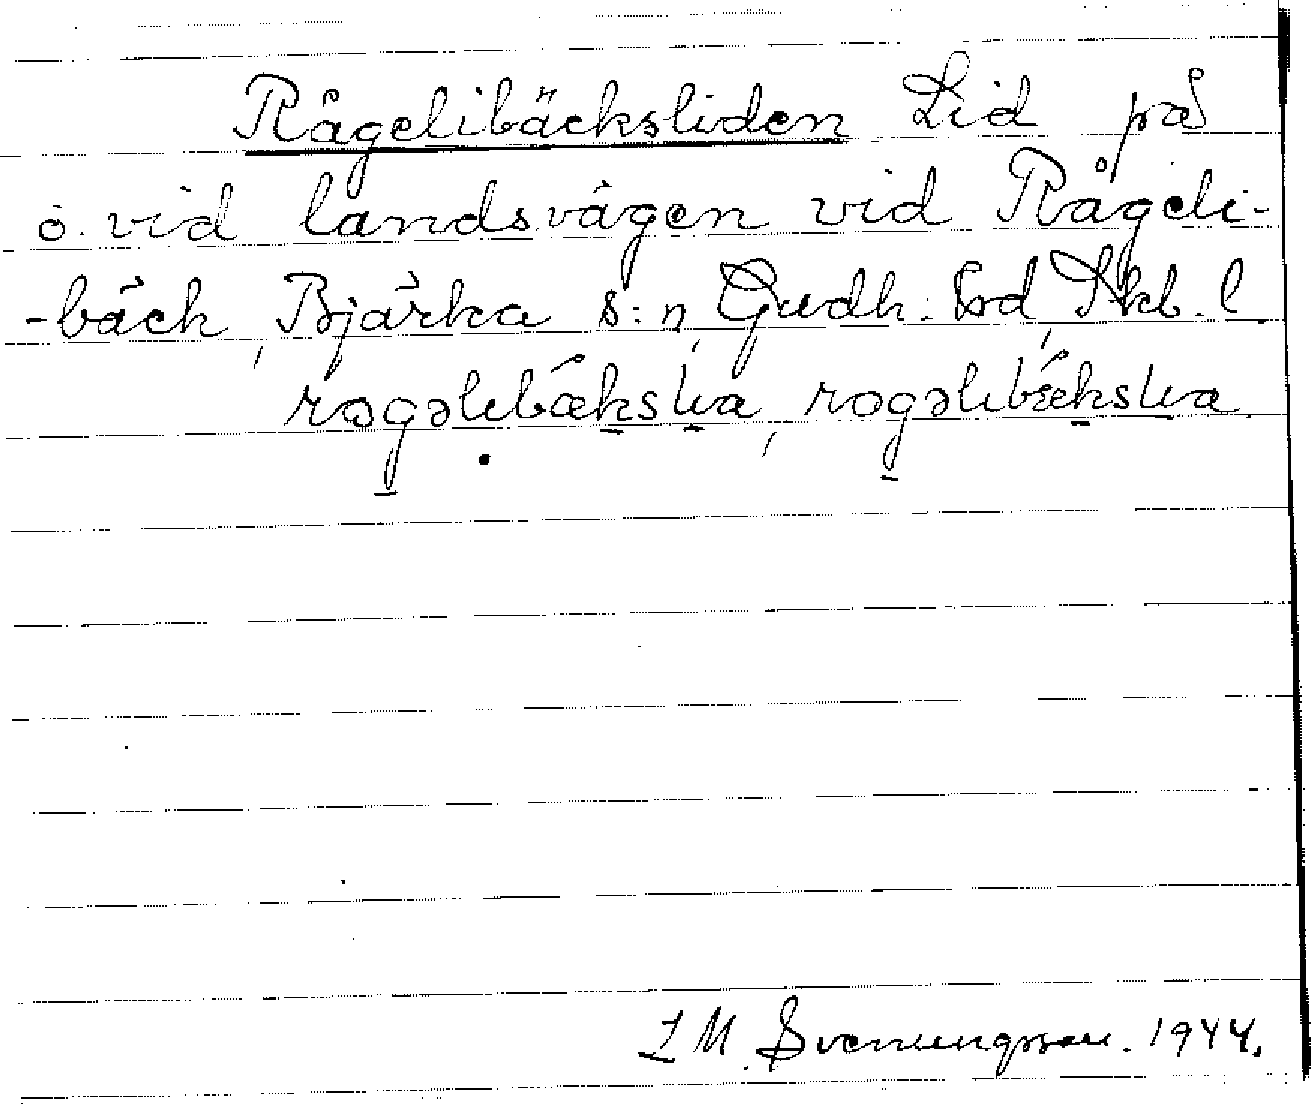 Rågelibäcksliden Lid på
ö. vid landsvägen vid Rågeli-
-bäck, Bjärka s:n, Gudh. hd, Skb. l.
rogəlɩbækslɩa, rogəlɩbækslɩa.
L M. Svenungsson. 1944.